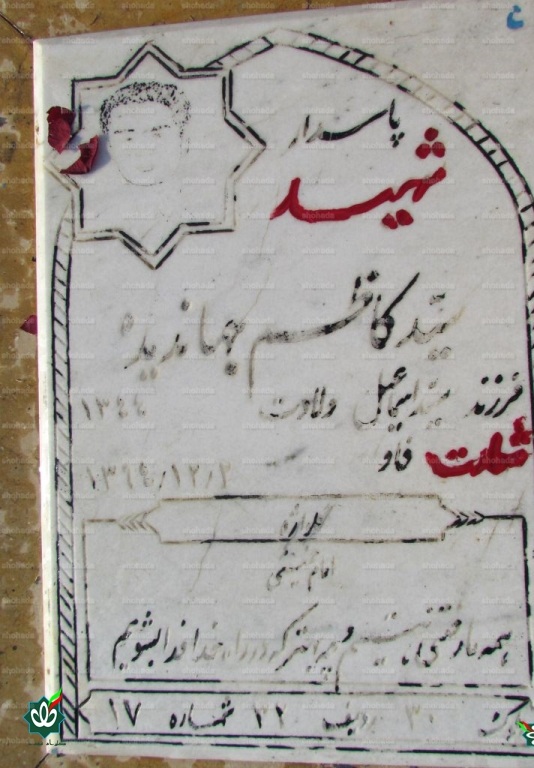 پاسدار
شهید
سیّد کاظم جهاندیده
فرزند سیّد اسماعیل ولادت ۱۳۴۴
شهادت فاو ۱۳۶۴/۱۲/۲
گلزار
امام خمینی
همه ما رفتنی هستیم و چه بهتر که در راه خدا فدا بشویم
۳۰ ردیف ۲۲ شماره ۱۷
shohada